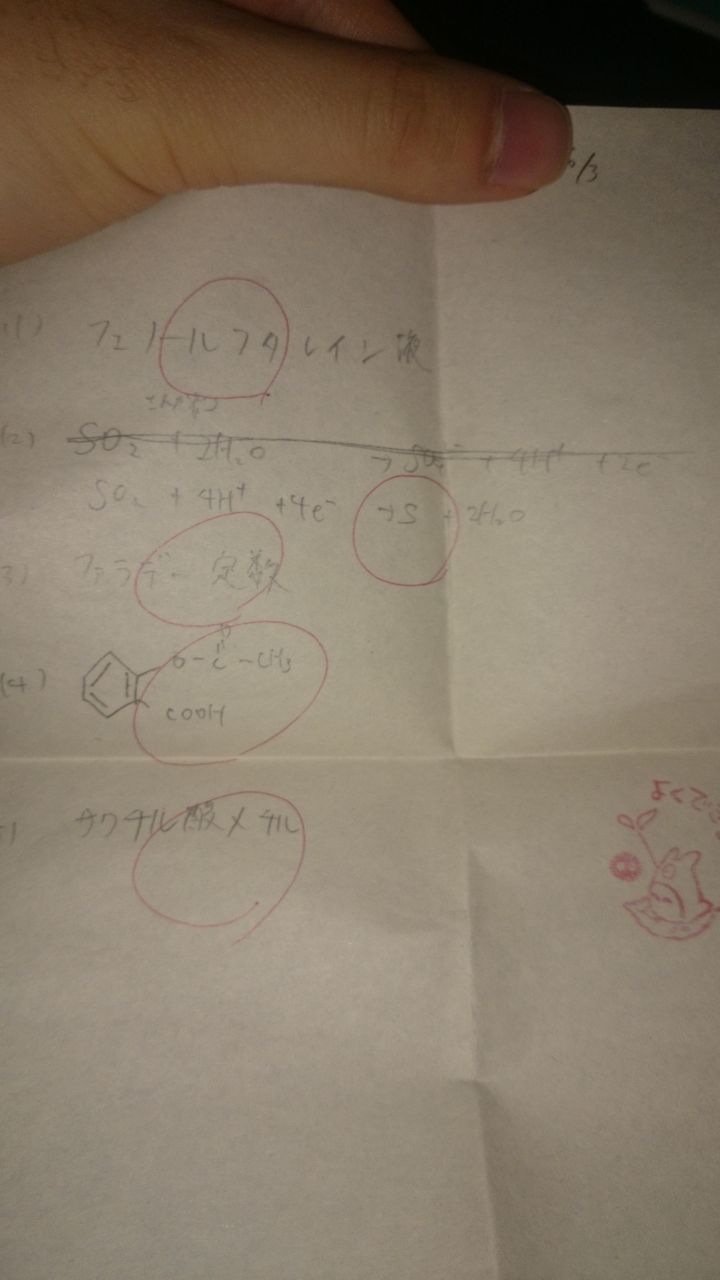 6/3
(1) フェノールフタレイン液
(2) SO₂ + 2H₂O → SO₄²⁻ + 4H⁺ + 2e⁻
SO₂ + 4H⁺ + 4e⁻ → S + 2H₂O
(3) ファラデー定数
(4)
O
O-C-CH₃
COOH
サリチル酸メチル
よくで